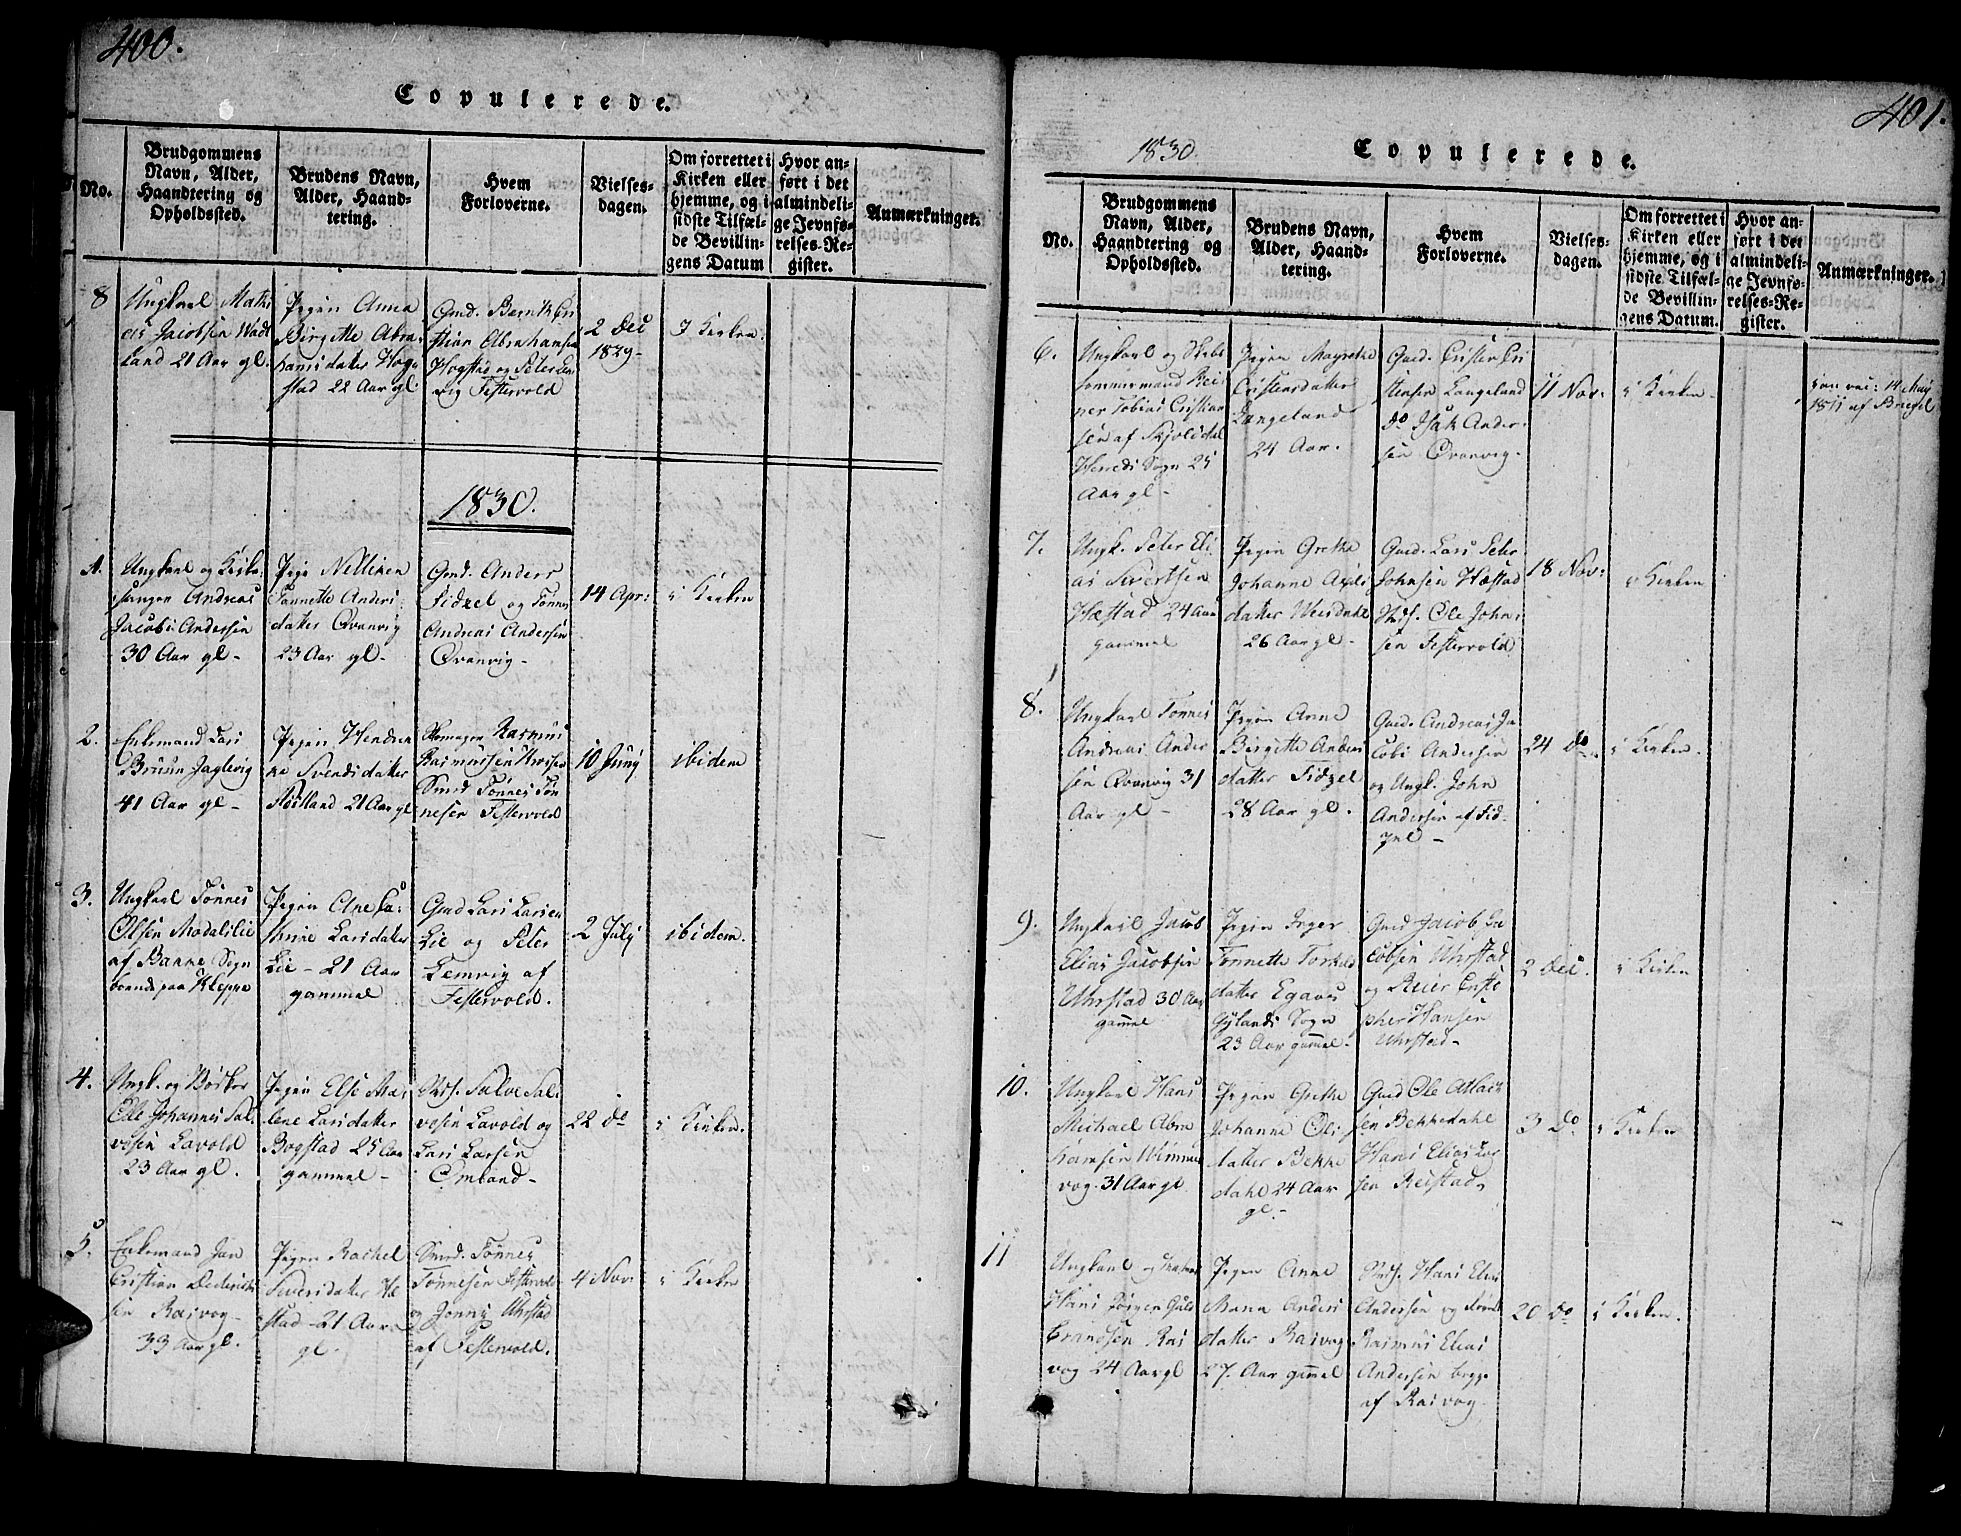 400.
Copulerede.
No.
Brudgommens
Navn, Alder,
Haandtering og
Opholdssted.
Brudens Navn,
Alder, Haand-
tering.
Hvem
Forloverne.
Vielses-
dagen.
Om forrettet i
Kirken eller
hjemme, og i
sidste Tilfæl-
de Bevillin-
gens Datum
Hvor an-
ført i det
almindeli-
ge Jevnfø-
relses-Re-
gister.
Anmærkninger.
8
Ungkarl Mathi
as Jacobsen Wat
land 21 Aar gl.
Pigen Anna
Birgitte Abra-
hamsdatter Hog
stad 22 Aar gl.
Gmd. Bernt Cri
stian Abrahamsen
Hogstad og Peter
vig Festervold
2 Dec
1829-
I Kirken.
1830.
1.
Ungkarl og Kirke
sanger Andreas
Jacobi Andersen
30 Aar gl-
Pige Nelliken
Tonnette Anders
datter Qvanvig
23 Aar gl-
Gmd. Anders
Fidzel og Tønnes
Andreas Andersen
Qvanvig-
14 Apr:
i Kirken
2.
Enkemand Lars
Bruun Jaglevig
41 Aar gl-
Pigen Hendri
ke Svendsdatter
21 Aar gl
Rasmus
Rasmussen
Smd Tønnes Tøn
nesen Festervold
10 Juny
ibidem
3.
Ungkarl Tønnes
Olsen Modalslie
af Banne Sogn
boende paa Kleppe
Pigen Ane Ca-
thrine Larsdatter
Lie - 21 Aar
gammel
Gmd Lars Larsen
Lie og Peter
Lemvig af
Festervold.
2 July
ibidem.
4.
Ungk. og Bødker
Ole Johannes Sal
vesen Lavold
23 Aar gl.
Pigen Else Ma-
lene Larsdatter
Bogstad 25 Aar
gammel-
Salve Sal-
vesen Lavold og
Lars Larsen
Omland-
22 do
i Kirken.
5.
Enkemand Jan
Cristian Dideriks
sen Rasvog-
33 Aar gl.
Pigen Rachel
Siversdatter He
stad - 21 Aar
gl-
Smd. Tønnes
Tønnesen Festervold
og Jonny Uhrstad
af Festervold.
4 Nov:
i Kirken
401.
1830.
Copulerede.
No.
Brudgommens
Navn, Alder,
Haandtering og
Opholdssted.
Brudens Navn,
Alder, Haand-
tering.
Hvem
Forloverne.
Vielses-
dagen.
Om forrettet i
Kirken eller
hjemme, og i
sidste Tilfæl-
de Bevillin-
gens Datum.
Hvor an-
ført i det
almindeli-
ge Jevnfø-
relses-Re-
gister.
Anmærkninger.
6.
Ungkarl og Skibs
tømmermand Rei
ner Tobias Cristian
sen af Skjoldedal
Herreds Sogn 25
Aar gl-
Pigen Magrethe
Cristensdatter
Langeland
24 Aar.
Gmd. Crister Cri
stensen Langeland
do Isak Ander-
sen Qvanvig-
11 Nov:
i Kirken-
14 May
1811 af
7.
Ungk. Peter Eli
as Sivertsen
Hæstad 24 Aar
gammel
Pigen Grethe
Johanne
datter Weisdahl
26 Aar gl-
Gmd. Lars Peter
Johnsen Hæstad
Ole Johns
sen Festervold
18 Nov:
i Kirken
8.
Ungkarl Tønnes
Andreas Ander
sen Qvanvig 31
Aar gl-
Pigen Anne
Birgitte Anders
datter Fidzel
28 Aar gl.
Gmd. Andreas Ja
cobi Andersen
og Ungk. John
Andersen af Fid-
zel-
24 do
i Kirken-
9.
Ungkarl Jacob
Elias Jacobsen
Uhrstad 30 Aar
gammel
Pigen Inger
Tonnette Torkild
datter Egaas
Gylands Sogn
23 Aar gammel-
Gmd Jacob Ja
cobsen Uhrstad
og Reier Cristo
pher Hansen
Uhrstad-
2 Dec.
i Kirken
10.
Ungkarl Hans
Michael Abra
hamsen
vog. 31 Aar gl
Pigen Grethe
Johanne Ols
datter Bekke
dahl 24 Aar
gl.-
Gmd Ole Atlack
sen Bekkedahl
Hans Elias Lar
sen Reistad
3 do
i Kirken
11
Ungkarl og
Hans Jørgen Guld
brandsen Ras
vog 24 Aar gl
Pigen Anne
Maria Anders
datter Rasvog
27. Aar gammel
Hans Elias
Andersen og
Rasmus Elias
Andersen begge
af Rasvog-
20 do
i Kirken.